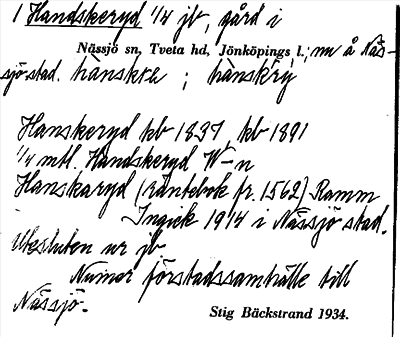 1 Handskeryd 1/4 jb, gård i
Nässjö sn, Tveta hd, Jönköpings l.; nu å Näs-
sjö stad. hànsktɩ ; hànskrý
Hanskeryd kb 1837, kb 1891
1/4 mtl. Handskeryd W-n
Hanskaryd (Räntebok fr. 1562) Ramm
Ingick 1914 i Nässjö stad.
Utesluten ur jb.
Numer förstadssamhälle till
Nässjö.
Stig Bäckstrand 1934.